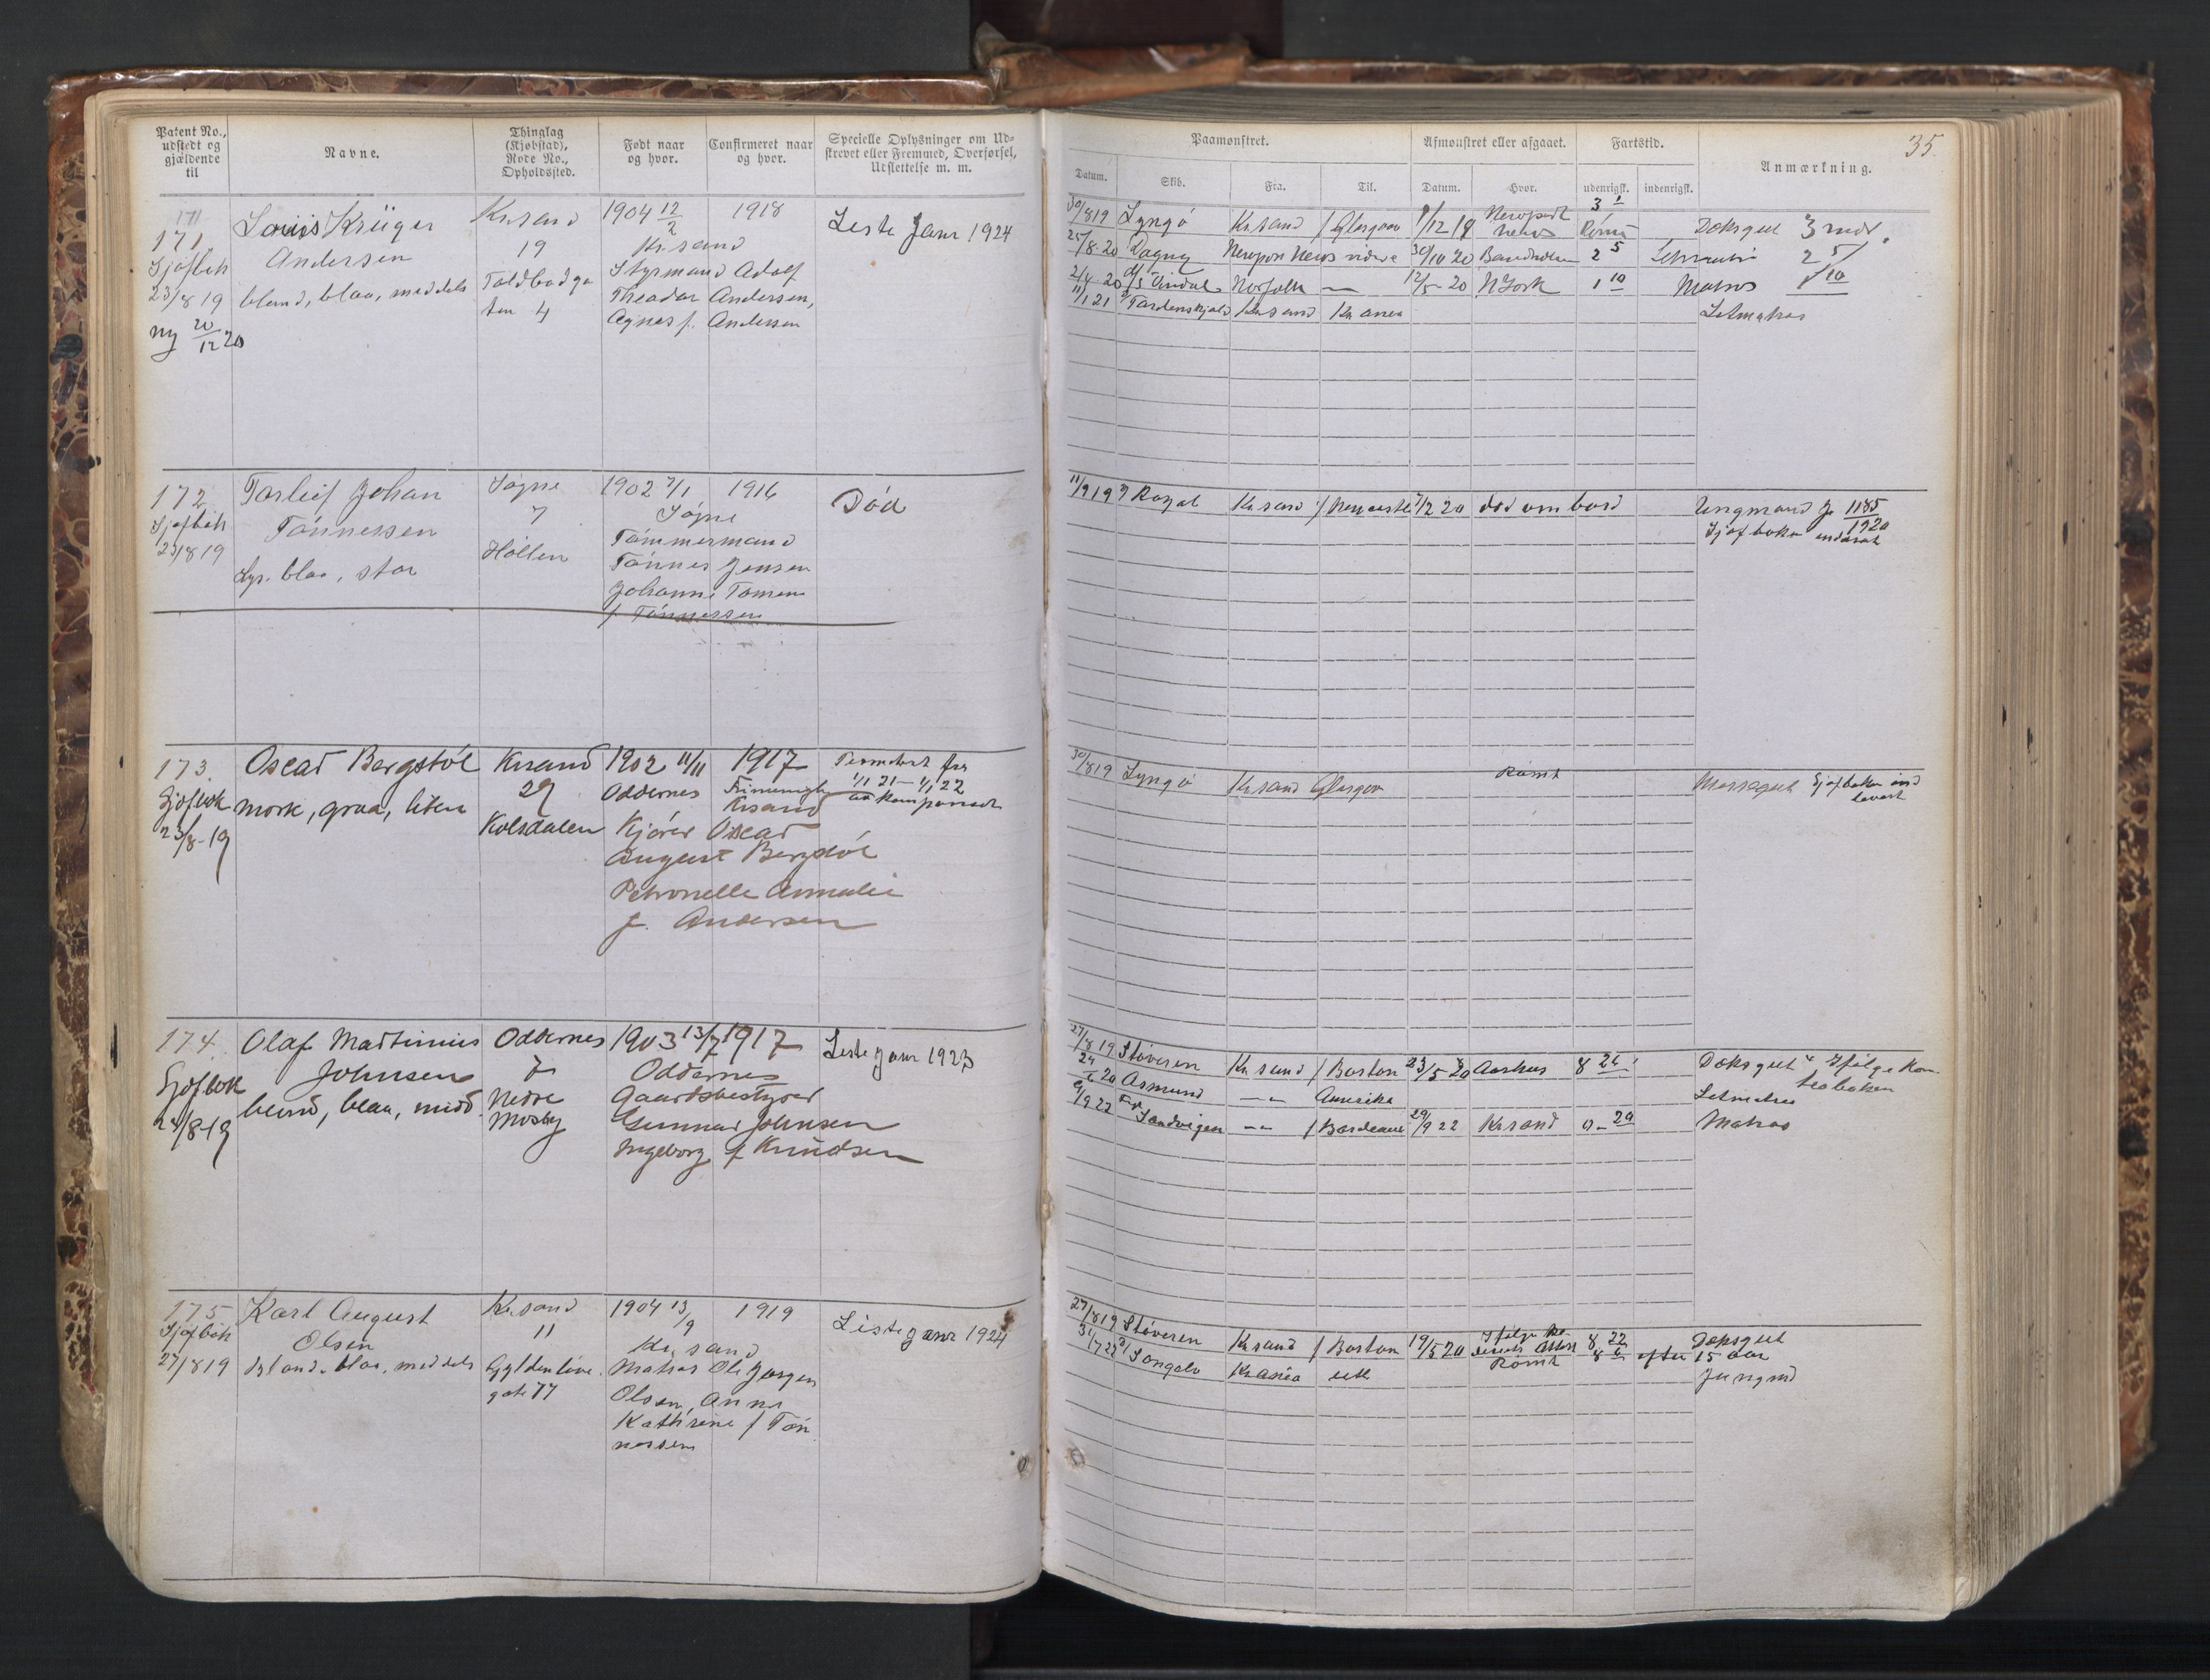 Patent No., udstedt og gjældende til
Navne.
Thinglag (Kjøbstad), Rode No., Opholdssted.
Født naar og hvor.
Confirmeret naar og hvor.
Specielle Oplysninger om Udskrevet eller Fremmed, Overførsel, Udslettelse m. m.
171
171.
Sjøfbok
23/8 19
ny 20/12 20
Louis Krüger
Andersen
blond, blaa, middels
Kr.sand
19
Toldbodga
ten 4
1904 12/2 1918
Kr.sand
Styrmand Adolf
Theodor Andersen,
Agnes f. Andersen
Liste Janr 1924
172
Sjøfbok
23/8 19
Torleif Johan
Tønnessen
Lys. blaa, stor
Søgne
7
Höllen
1902 7/1 1916
Søgne
Tømmermand
Tønnes Jensen
Johanne Tomine
f. Tønnessen
Død
173.
Sjøfbok
23/8-19
Oscar Bergstøl
mørk, graa, liten
Krsand
29
Kolsdalen
1902 11/11 1917
Oddernes Frimenigh
Krsand
Kjører Oscar
August Bergstøl
Petronelle Annalie
f. Andersen
Permitert fra
1/11 21 - 1/1 22
174.
Sjøfbok
24/8-19
Olaf Martinius
Johnsen
blond, blaa, midd.
Oddernes
7
Nedre
Mosby
1903 13/7 1917
Oddernes
Gaardsbestyrer
Gunnar Johnsen
Ingeborg f. Knudsen
Liste Janr 1923
175
Sjøfbok
27/8 19
Karl August
Olsen
Blond. blaa, middels
Kr.sand
11
Gyldenløve.
gate 77
1904 13/9 1919
Kr.sand
Matros Ole Jørgen
Olsen, Anne
Kathrine f Tøn
nessen
Liste Janr 1924
35.
Paamønstret.
Afmønstret eller afgaaet.
Fartstid.
Anmærkning.
Datum. Skib. Fra. Til. Datum. Hvor. udenrigsk. indenrigsk.
30/8 19 Lyngø Kr.sand / Glasgow 1/12 19 Newport News Rømt 3 1 Dæksgut 3 mdr.
25/8-20 Dagny Newport News videre 30/10 20 Bandholm 2 5 2 5/
2/4-20 Vindal Norfolk — 12/5-20 N York 1 10 Matros 1/10
11/1 21 Tordenskjold Kr.sand Kr.ania Letmatros
11/9 19 Royal Kr.sand / Newcastle 7/2 20 død ombord Ungmand J. 1185/1920
Sjøfboken indsendt
30/8 19 Lyngø Kr.sand Glasgow Rømt Messegut Sjøfboken ind
levert
27/8 19 Støveren Kr.sand / Boston 23/5-20 Aarhus 8 26 Dæksgut Ifølge Kon
24/6 20 Asmund —"— Amerika Letmatros
9/9 22 Sandvigen —"— / Bordeaux 29/9 22 Kr.sand 0-20 Matros
27/8 19 Støveren Kr.sand / Boston 19/5 20 8 22 Dæksgut
8 6 efter 15 aar
31/7 22 Songelv Kr.ania utl Rømt Jungmd